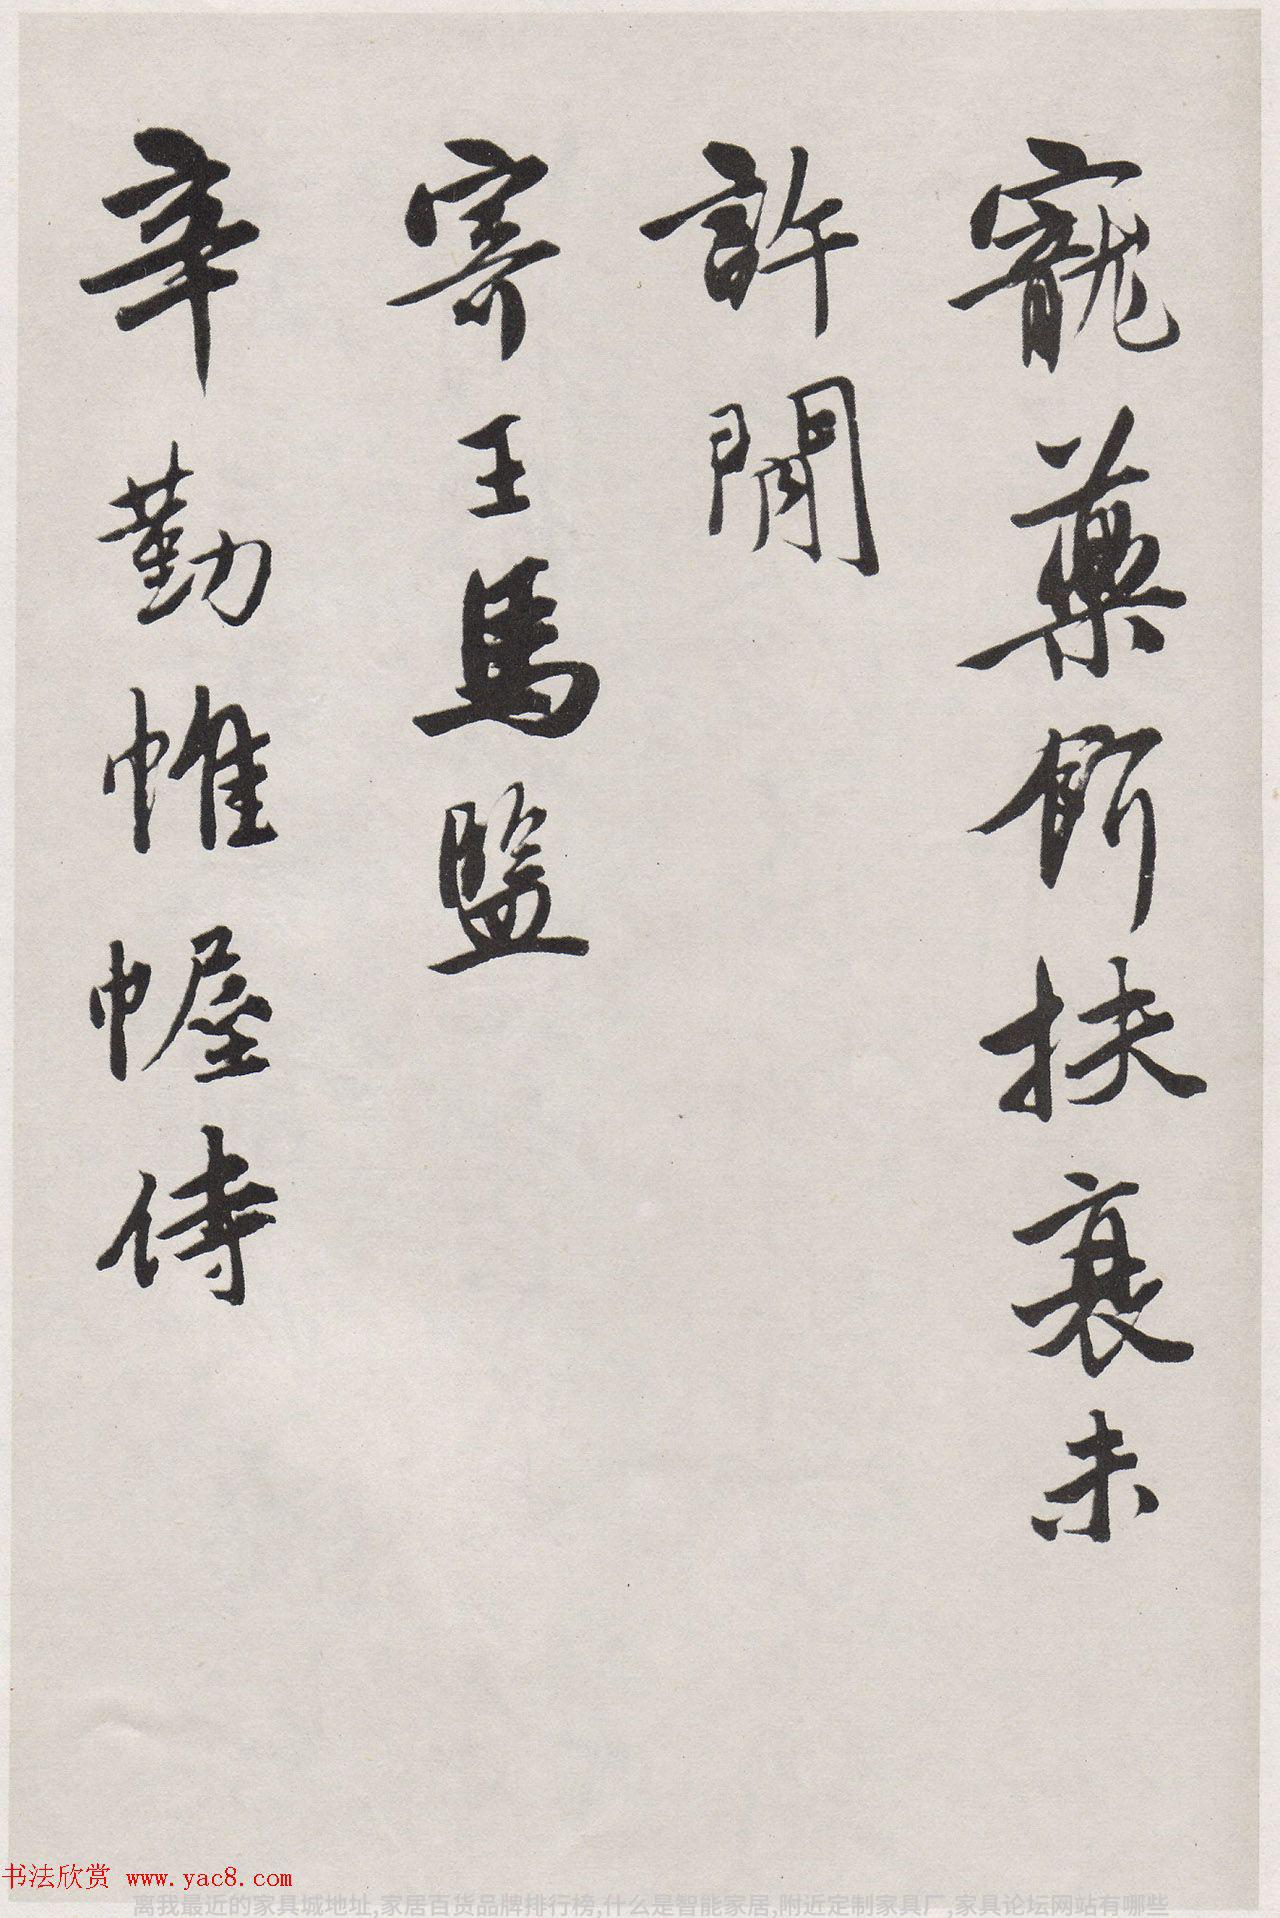 寵藥餌扶衰未
許閒
寄王馬監
辛勤帷幄侍
书法欣赏 www.yac8.com
离我最近的家具城地址,家居百货品牌排行榜,什么是智能家居,附近定制家具厂,家具论坛网站有哪些